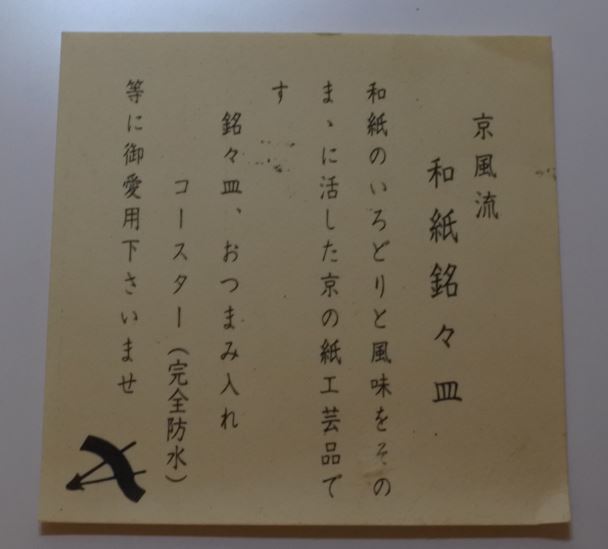 京風流
和紙銘々皿
和紙のいろどりと風味をその
まゝに活した京の紙工芸品で
す
銘々皿、おつまみ入れ
コースター(完全防水)
等に御愛用下さいませ